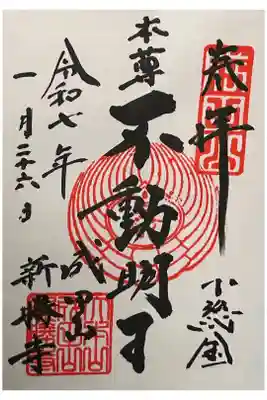 奉拝
本尊
不動明王
成田山
新勝寺
令和七年
一月二十六日